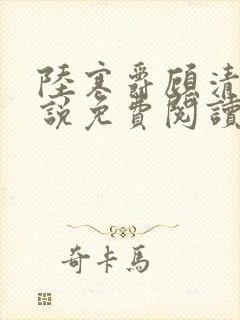 陸寒爵顧清
說免費閱讀
奇卡馬